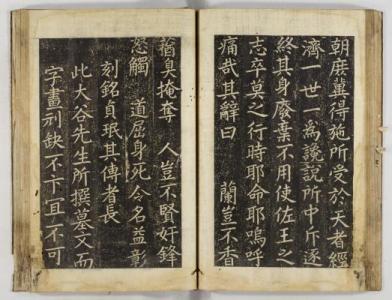 朝磨冀得施所受於天者經
濟一世一為讒說所中斥逐
終其身廢棄不用使佐王之
志卒莫之行時耶命耶嗚呼
痛哉其辭曰　蘭豈不香
蕕臭掩奪　人豈不賢奸鋒
怒觸　道屈身死令名益彰
刻銘貞珉其傳者長
此大谷先生所撰墓文而
字畫刓缺不下宜不可